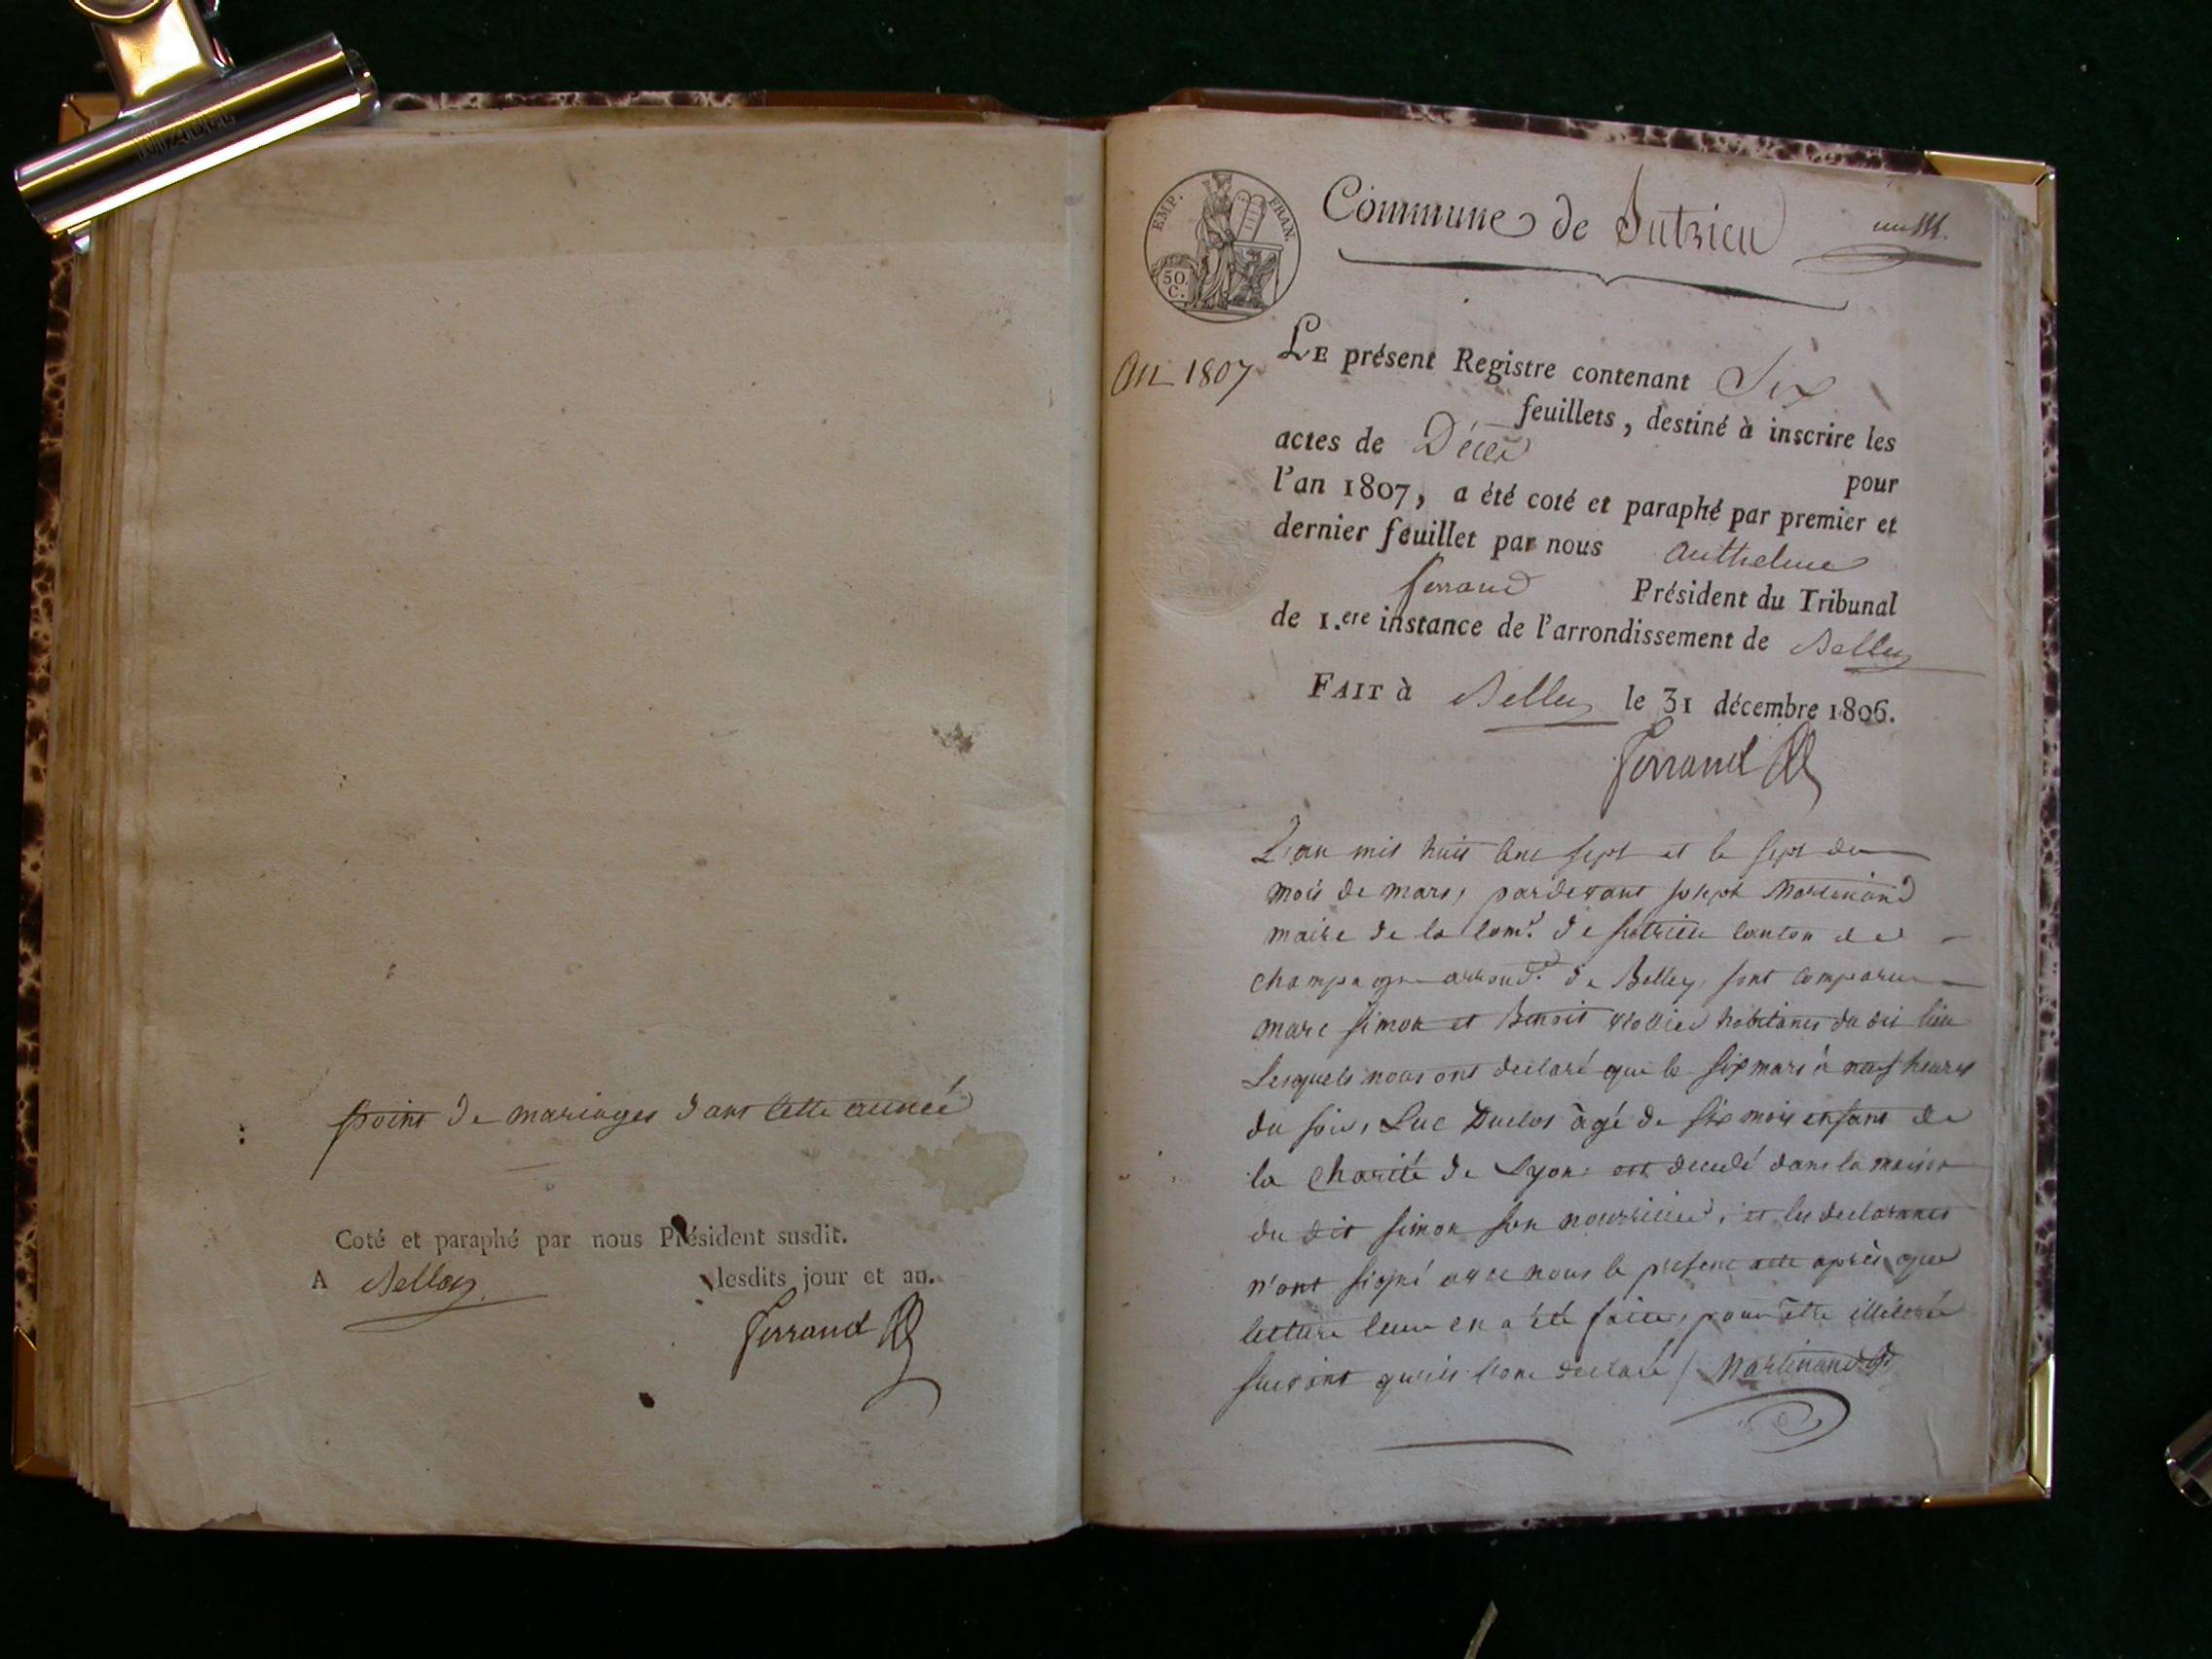 point de mariages dans cette année
Coté et paraphé par nous Président susdit.
A Belley lesdits jour et an.
Ferrand
EMP. FRAN.
50. C.
Commune de Sutrieu
An 1807
LE présent Registre contenant Six
feuillets, destiné à inscrire les
actes de Décès pour
l'an 1807, a été coté et paraphé par premier et
dernier feuillet par nous Anthelme
ferrand Président du Tribunal
de 1.ere instance de l'arrondissement de Belley
FAIT à Belley le 31 décembre 1806.
Ferrand
L'an mil huit cent sept et le sept du
mois de mars, pardevant joseph Martinand
maire de la com.e de sutrieu canton de
champagne arrond.t de Belley, sont comparu
marc simon et Benoit habitants du dit lieu
Lesquels nous ont declaré que le six mars à neuf heures
du soir, Luc Duclos âgé de six mois enfant de
la charité de Lyon est decedé dans la maison
du dit simon son nourricier, et les declarants
n'ont signé avec nous le present acte après que
lecture leur en a été faite, pour être illiteré
suivant qu'ils l'ont declaré / Martinand